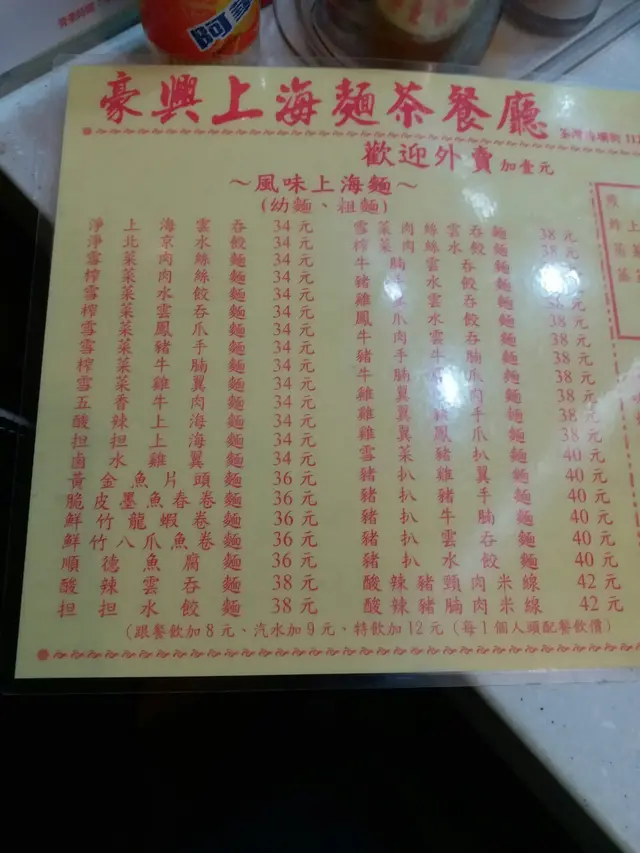 豪興上海麵茶餐廳
歡迎外賣 加壹元
~風味上海麵~
(幼麵、粗麵)
淨上海雲吞 34元
淨北京水餃 34元
雪菜肉絲麵 34元
榨菜肉絲麵 34元
雪菜水餃麵 34元
榨菜雲吞麵 34元
雪菜鳳爪麵 34元
雪菜豬手麵 34元
榨菜牛腩麵 34元
雪菜雞翼麵 34元
五香牛肉麵 34元
酸辣上海麵 34元
担担上海麵 34元
鹵水雞翼麵 34元
黃金魚片頭麵 36元
脆皮墨魚春卷麵 36元
鮮竹龍蝦卷麵 36元
鮮竹八爪魚卷麵 36元
順德魚腐麵 36元
酸辣雲吞麵 38元
担担水餃麵 38元
雪菜肉絲雲吞麵 38元
榨菜肉絲水餃麵 38元
牛腩雲吞麵
豬手水餃麵
雞翼雲吞麵
鳳爪水餃麵 38元
牛肉雲吞麵 38元
豬手牛腩麵
牛腩鳳爪麵 38元
雞翼牛腩麵 38元
雞翼豬手麵 38元
雞翼鳳爪麵 38元
雪菜豬扒麵 40元
豬扒雞翼麵 40元
豬扒豬手麵 40元
豬扒牛腩麵 40元
豬扒雲吞麵 40元
豬扒水餃麵 40元
酸辣豬頸肉米線 42元
酸辣豬腩肉米線 42元
(跟餐飲加8元、汽水加9元、特飲加12元(每1個人頭配餐飲價)